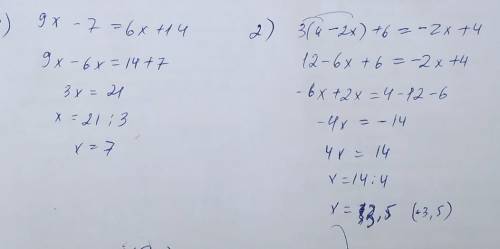 ) 9x - 7 = 6x + 14
9x - 6x = 14 + 7
3x = 21
x = 21 : 3
x = 7
2) 3(4 - 2x) + 6 = -2x + 4
12 - 6x + 6 = -2x + 4
-6x + 2x = 4 - 12 - 6
-4x = -14
4x = 14
x = 14 : 4
x = 3,5 (3,5)